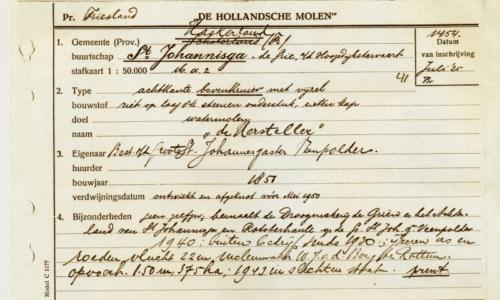 Pr. Friesland "DE HOLLANDSCHE MOLEN"
Haskerland
1. Gemeente (Prov.) (Fr.) 1454.
buurtschap St. Johannisga - de Grie, a/d Datum
stafkaart 1 : 50.000 16 d 2 van inschrijving
411 Juli
2. Type achtkante bovenkruier met vijzel
bouwstof riet op laag 8k steenen onderstuk, kap
doel watermolen
naam "de Hersteller"
3. Eigenaar Best. v/d Groote St. Johannesgaster Veenpolder.
huurder
bouwjaar 1851
verdwijningsdatum onttakeld en afgeknot vóór Mei 1950
4. Bijzonderheden geen zeilen, bemaalt de Droogmakerij de Griën en het Achter
land van St Johannesga en Rotsterhaule v/d Gr. St. Joh. Veenpolder
1940: buiten bedrijf sinds 1930: Ijzeren as en
roeden, vlucht 22 m, molenmaker W. J. v. d. Berg te Rottum.
opvoerh. 1.50 m. 375 ha: 1943 in slechten staat. prent
Model C 1177